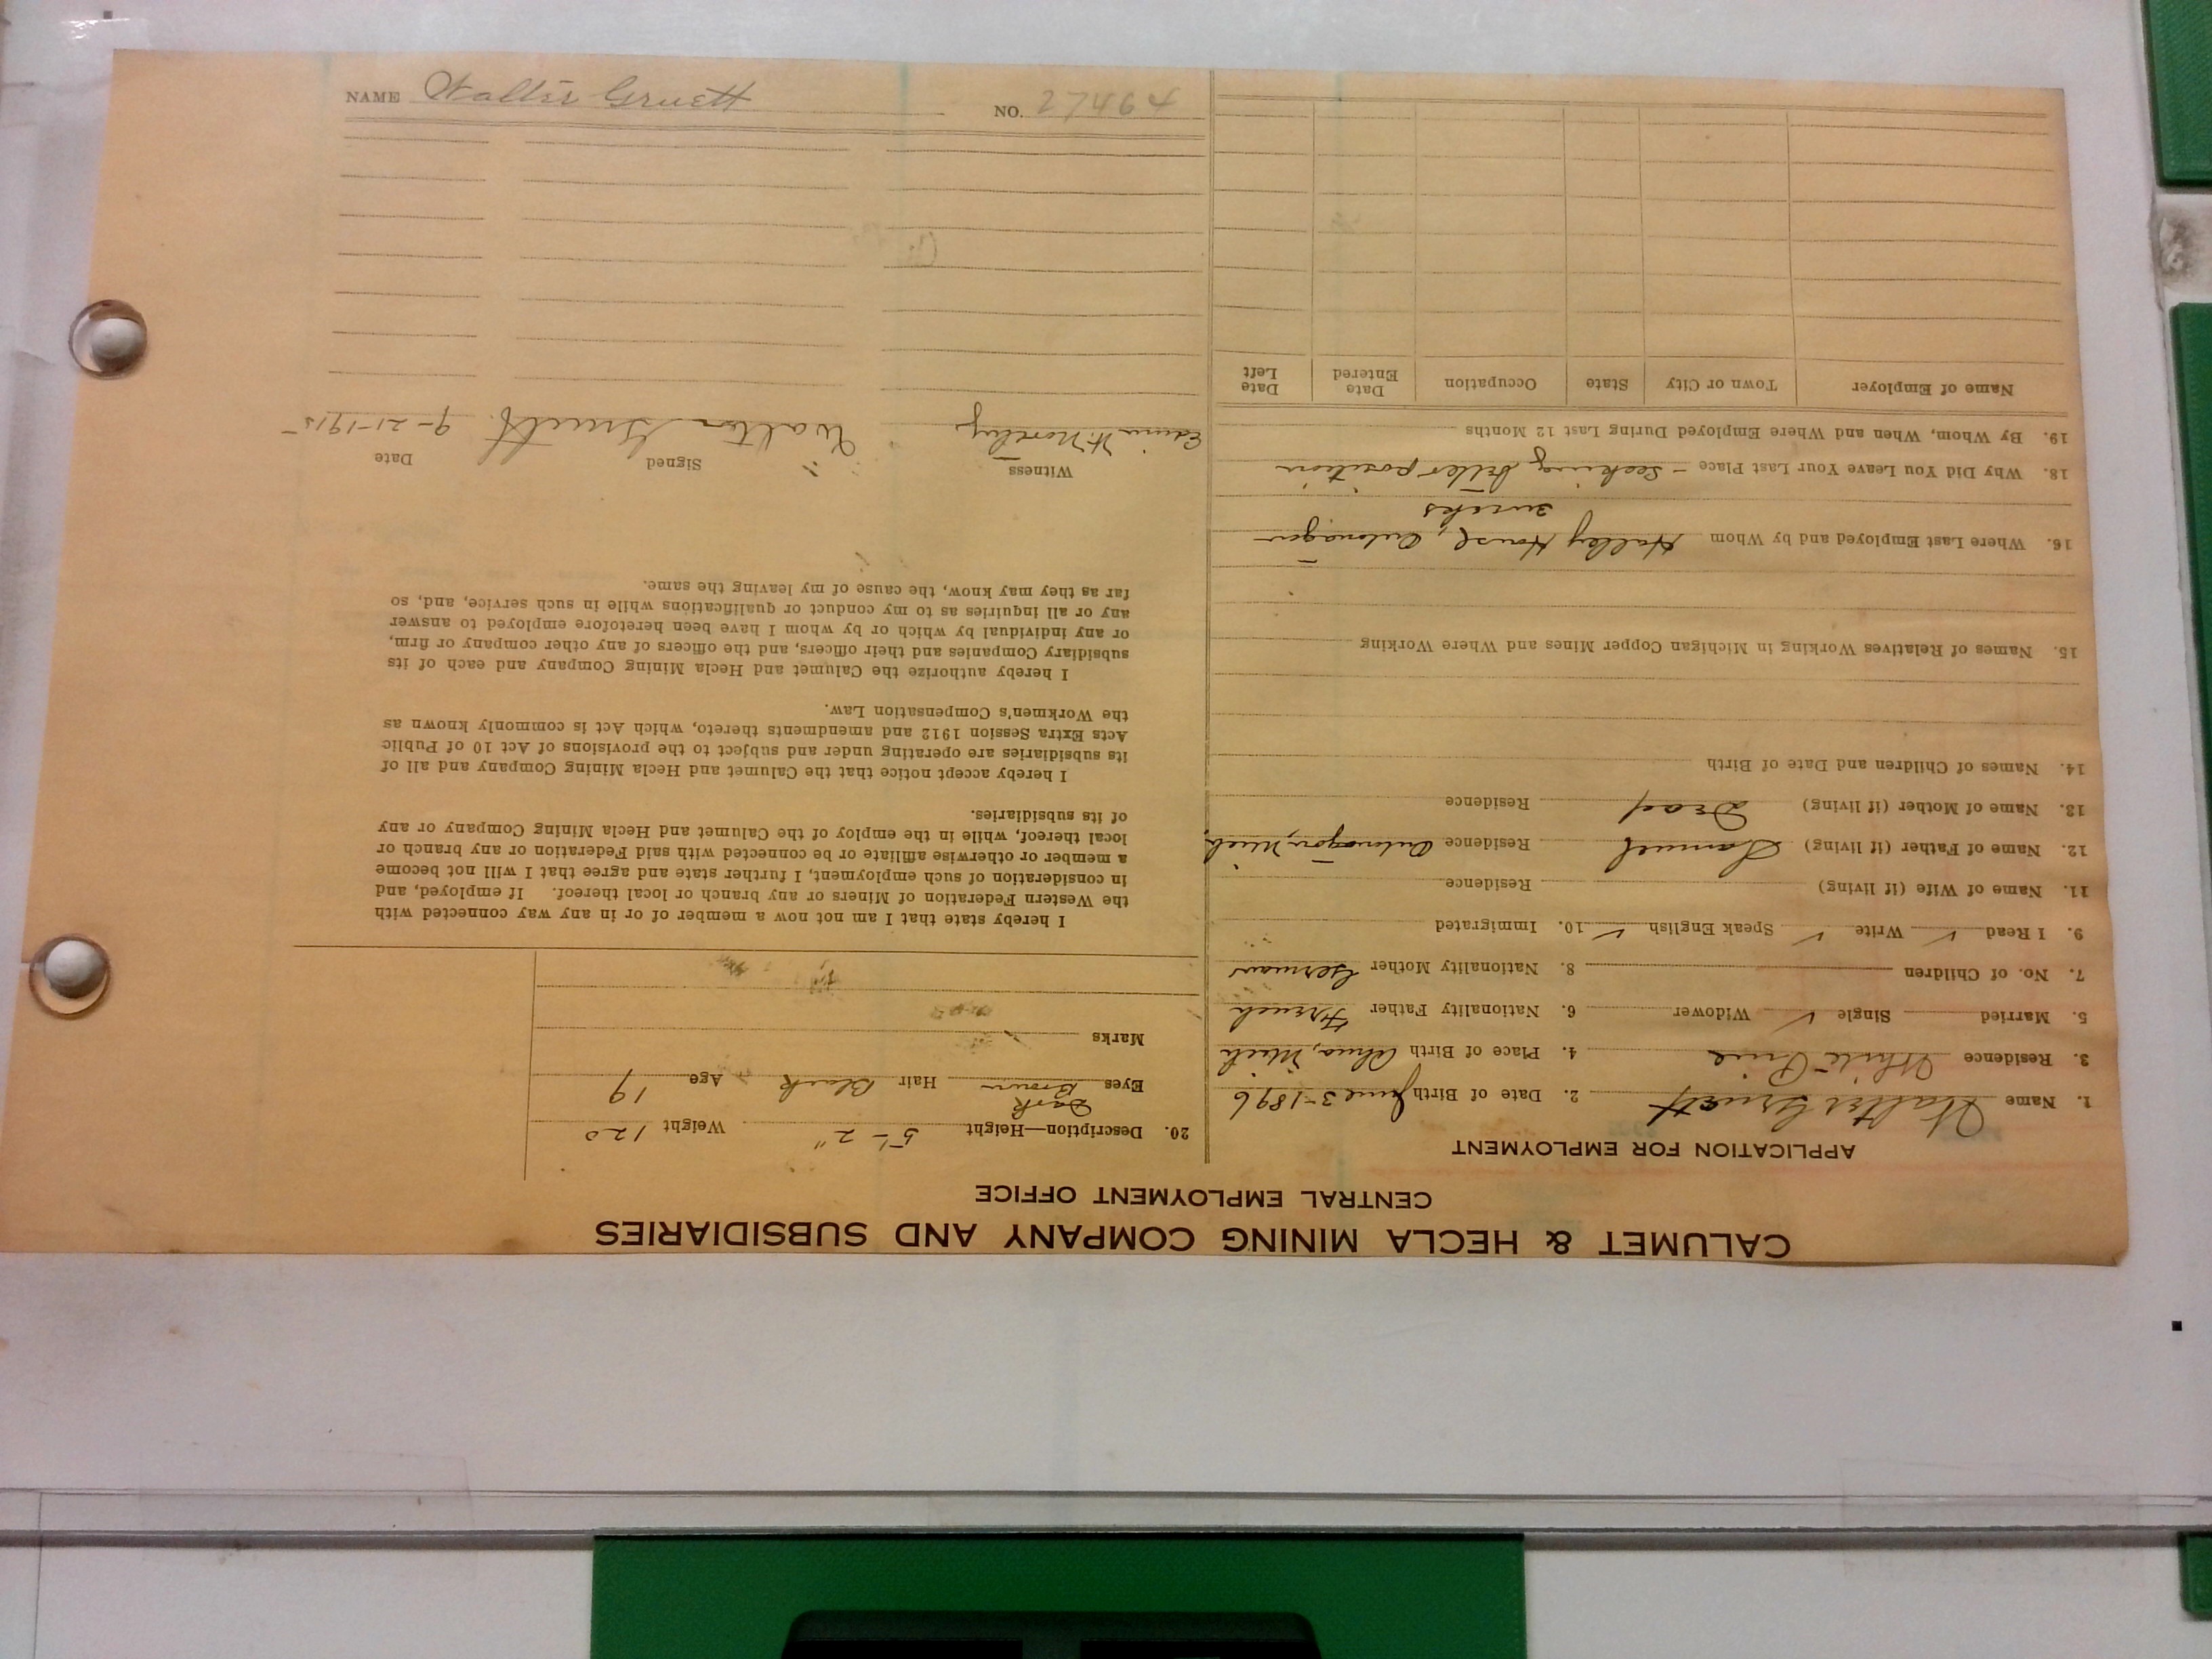 CALUMET & HECLA MINING COMPANY AND SUBSIDIARIES
CENTRAL EMPLOYMENT OFFICE
APPLICATION FOR EMPLOYMENT
1. Name Walter Gruett 2. Date of Birth June 3-1896
3. Residence White Pine 4. Place of Birth Alma, Mich
5. Married Single ✓ Widower 6. Nationality Father French
7. No. of Children 8. Nationality Mother German
9. I Read ✓ Write ✓ Speak English ✓ 10. Immigrated
11. Name of Wife (if living) Residence
12. Name of Father (if living) Samuel Residence Ontonagon, Mich
13. Name of Mother (if living) Dead Residence
14. Names of Children and Date of Birth
15. Names of Relatives Working in Michigan Copper Mines and Where Working
16. Where Last Employed and by Whom Halley House, Ontonagon
3 weeks
18. Why Did You Leave Your Last Place - Seeking better position
19. By Whom, When and Where Employed During Last 12 Months
Name of Employer Town or City State Occupation Date Entered Date Left
20. Description—Height 5'-2" Weight 120
Dark
Eyes Brown Hair Black Age 19
Marks
I hereby state that I am not now a member of or in any way connected with
the Western Federation of Miners or any branch or local thereof. If employed, and
in consideration of such employment, I further state and agree that I will not become
a member or otherwise affiliate or be connected with said Federation or any branch or
local thereof, while in the employ of the Calumet and Hecla Mining Company or any
of its subsidiaries.
I hereby accept notice that the Calumet and Hecla Mining Company and all of
its subsidiaries are operating under and subject to the provisions of Act 10 of Public
Acts Extra Session 1912 and amendments thereto, which Act is commonly known as
the Workmen's Compensation Law.
I hereby authorize the Calumet and Hecla Mining Company and each of its
subsidiary Companies and their officers, and the officers of any other company or firm,
or any individual by which or by whom I have been heretofore employed to answer
any or all inquiries as to my conduct or qualifications while in such service, and, so
far as they may know, the cause of my leaving the same.
Witness Signed Date
Edwin H. Northey Walter Gruett 9-21-1915
NAME Walter Gruett NO. 27464